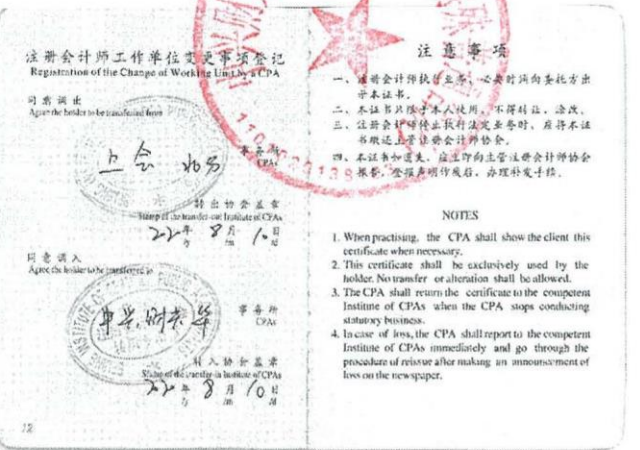 注册会计师工作单位变更事项登记
Registration of the Change of Working Unit by a CPA
同意调出
Agree the holder to be transferred from
上会
事务所
CPAs
转出协会盖章
Stamp of the transfer-out Institute of CPAs
年 8 月 10 日
/y /m /d
同意调入
Agree the holder to be transferred to
事务所
CPAs
转入协会盖章
Stamp of the transfer-in Institute of CPAs
年 8 月 10 日
/y /m /d
12
注意事项
一、注册会计师执行业务，必要时须向委托方出
示本证书。
二、本证书只限于本人使用，不得转让、涂改。
三、注册会计师停止执行法定业务时，应将本证
书缴还主管注册会计师协会。
四、本证书如遗失，应立即向主管注册会计师协会
报告，登报声明作废后，办理补发手续。
NOTES
1. When practising, the CPA shall show the client this
certificate when necessary.
2. This certificate shall be exclusively used by the
holder. No transfer or alteration shall be allowed.
3. The CPA shall return the certificate to the competent
Institute of CPAs when the CPA stops conducting
statutory business.
4. In case of loss, the CPA shall report to the competent
Institute of CPAs immediately and go through the
procedure of reissue after making an announcement of
loss on the newspaper.